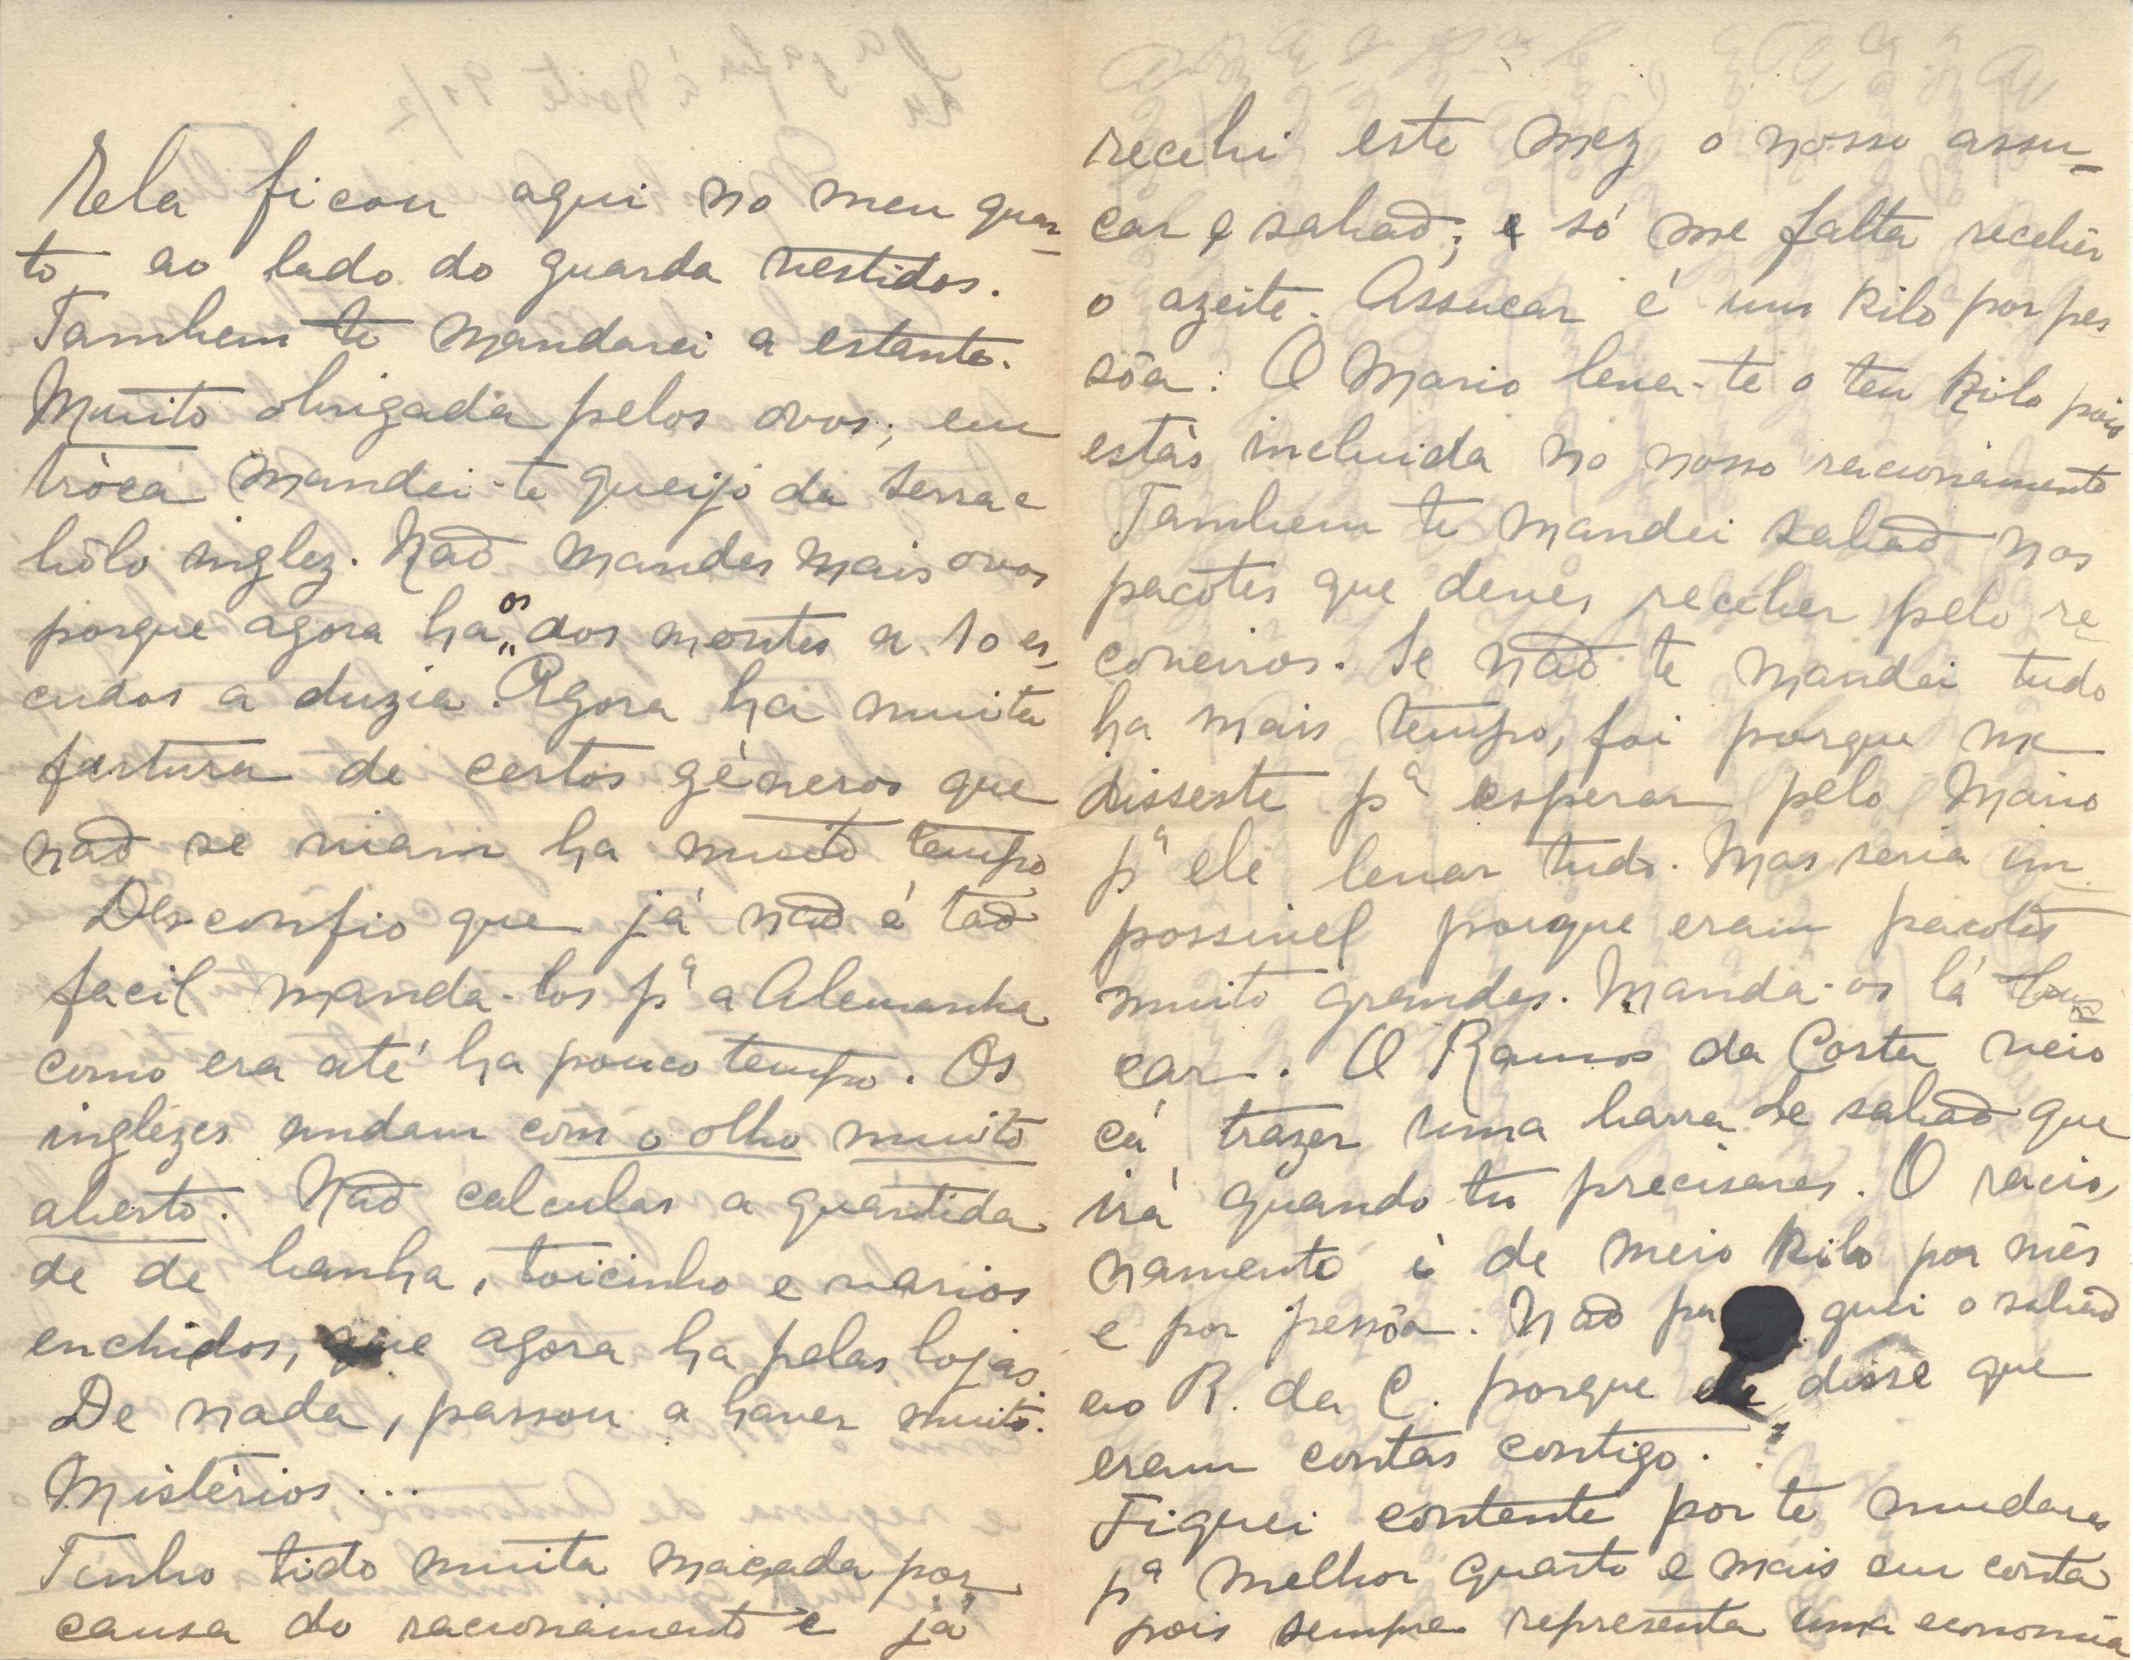 Ela ficou aqui no meu quar-
to, ao lado do guarda vestidos.
Tambem te mandarei a estante.
Muito obrigada pelos ovos; em
tròca mandei-te queijo da serra e
bôlo inglez. Não mandes mais ovos
porque agora ha os "dos montes a 10 es-
cudos a duzia. Agora ha muita
fartura de certos géneros que
não se viam ha muito tempo
Desconfio que já não é tão
facil manda-los pª a Alemanha
como era até ha pouco tempo. Os
inglezes andam com o olho muito
aberto. Não calculas a quantida
de de banha, toicinho e varios
enchidos, que agora ha pelas lojas
De nada, passou a haver muito.
Mistérios...
Tenho tido muita maçada por
causa do racionamento e já
recebi este mez o nosso assu-
car e sabão; e só me falta receber
o azeite. Assucar é um kilo por pes
sôa. O Mario leva-te o teu kilo pois
estás incluida no nosso racionamento
Tambem te mandei sabão nos
pacotes que deves receber pelo re
coveiros. Se não te mandei tudo
ha mais tempo, foi porque me
disseste pª esperar pelo Mario
pª ele levar tudo. Mas seria im
possivel porque eram pacotes
muito grandes. Manda-os lá bus
car. O Ramos da Costa veio
cá trazer uma barra de sabão que
irá quando tu precisares. O racio
namento é de meio kilo por mês
e por pessôa. Não pa guei o sabão
ao R. da C. porque ele disse que
eram contas contigo.
Fiquei contente por te mudares
pª melhor quarto e mais em conta
pois sempre representa uma economia